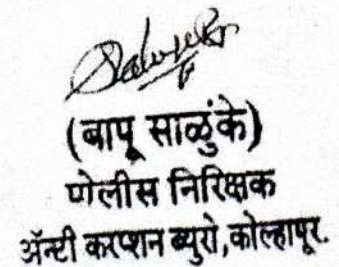 (बापू साळुंके)
पोलीस निरिक्षक
ॲन्टी करप्शन ब्युरो,कोल्हापूर.